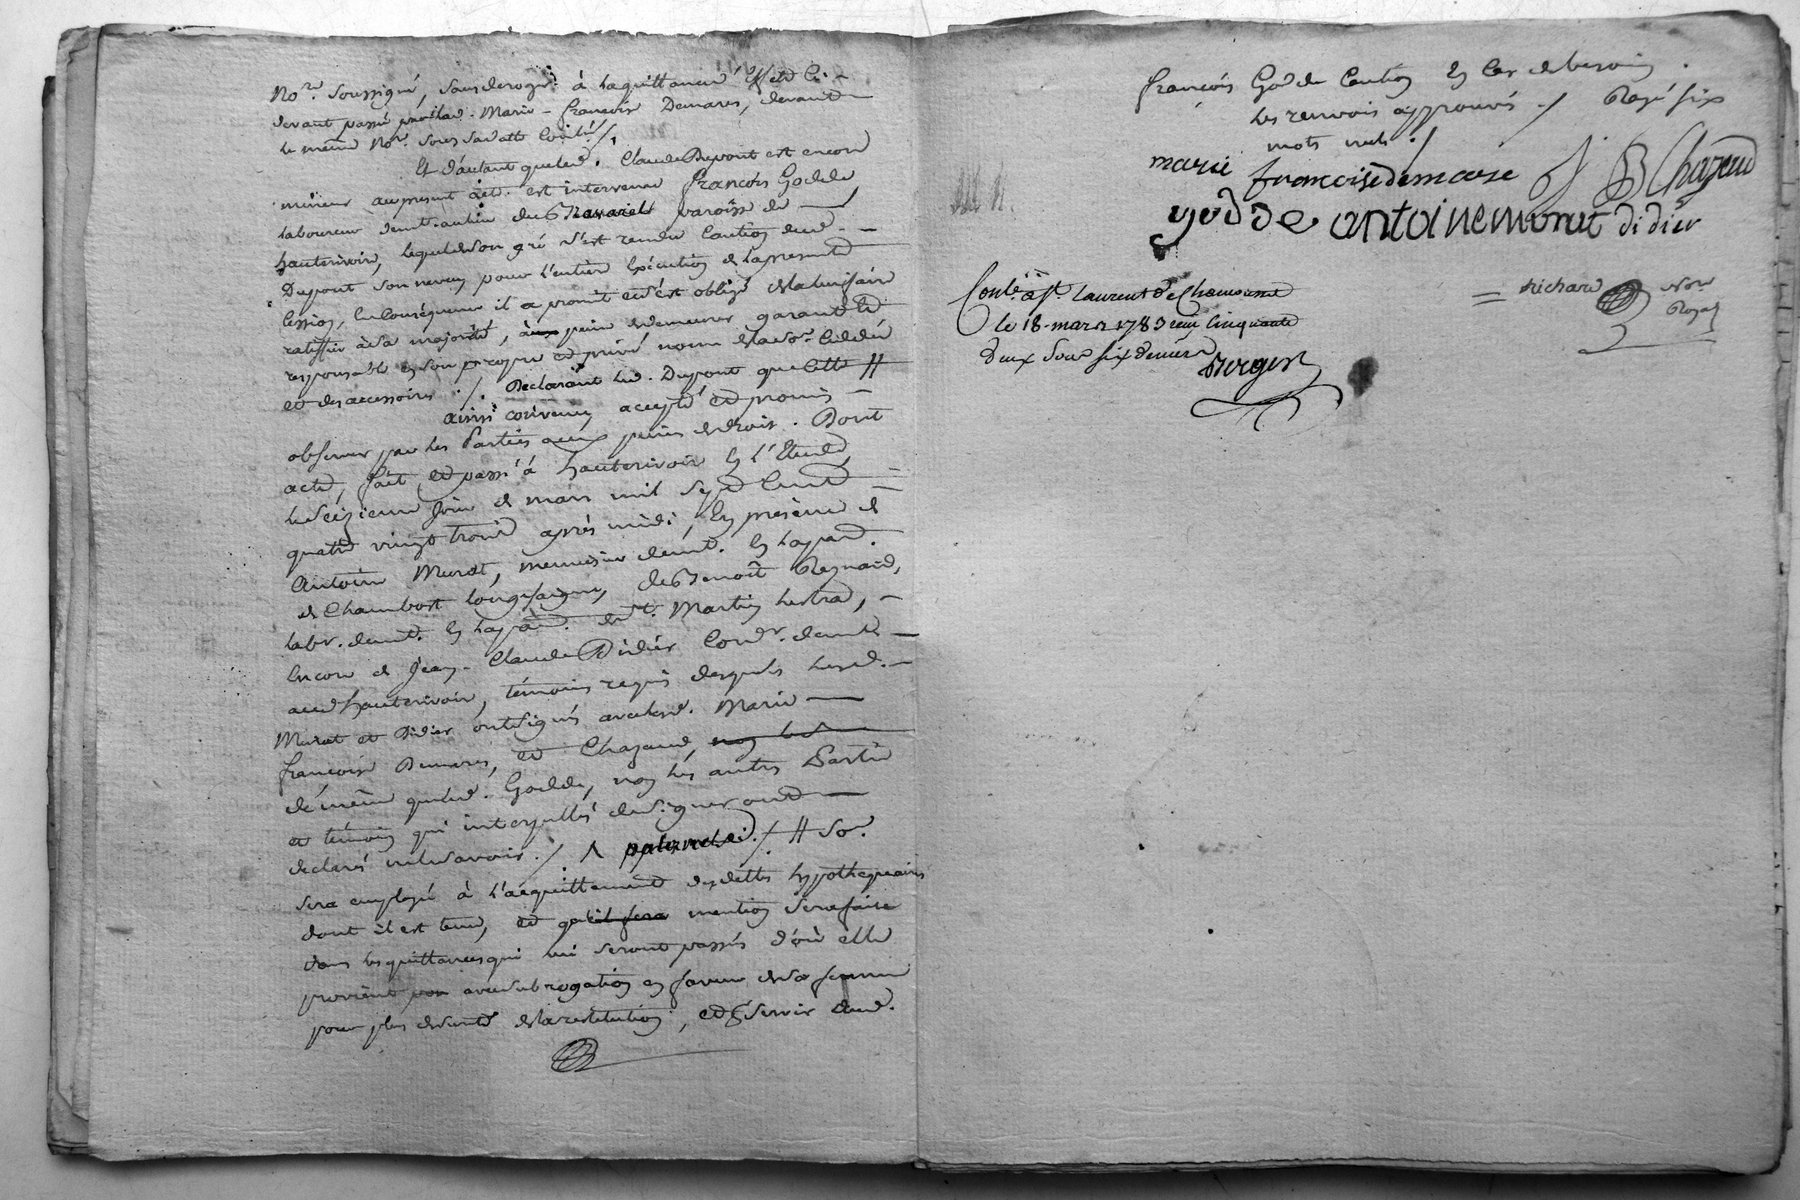 No.re soussigné, sans deroger à la quittance
devant passée par lad. Marie-françoise Demares, devant
le même No.re sous sa datte
Et d'autant que led. Claude Dupont est encore
mineur au present acte est intervenu françois Godde
laboureur demt. au lieu du paroisse de
hauterivoire, lequel de son gré s'est rendu caution dud.
Dupont son neveu pour l'entière Execution de la presente
Cession, En consequence il a promit et s'est obligé de la luy faire
ratiffier à sa majorité, à peine de demeurer garant et
responsable en son propre et privé nom de la so.e cedée
et des accessoires ./. Declarant led. Dupont que cette #
ainsi convenu, accepté et promis
observer par les Parties aux peines de droit. Dont
acte, fait et passé à hauterivoire En l'Etude,
le seizieme jour de mars mil sept cent
quatre vingt trois après midi, En présence de
Antoine Murat, menuisier demt. En la par.
de Chambost longessaigne, de Benoît Reynard,
labr. demt. En la par. de St. Martin lestra,
Encore de Jean-Claude Didier Cord.r demt.
aud. hauterivoire, témoins requis desquels lesd.
Murat et Didier ont signés avec lad. Marie
françoise Demares, et Chazaud,
de même que led. Godde, non les autres Partie
et témoin qui interpellés de signer ont
declaré ne le savoir ./. # so.e
sera employé à l'acquittement des dettes hypothequaires
dont il est tenu, et que mention sera faite
dans les quittances qui lui seront passés d'où elle
provient avec subrogation en faveur de sa femme
pour plus de sureté de la restitution, et servir dud.
françois Godde Caution En cas de besoin.
les renvois approuvés ./. Rayé six
mots nuls ./.
marie francoise demare J B Chazaud
godde antoine morat didier
richard No.re
Royal
Conlé. à st. Laurent de Chamousset
le 18. mars 1783 reçu cinquante
deux sous six deniers